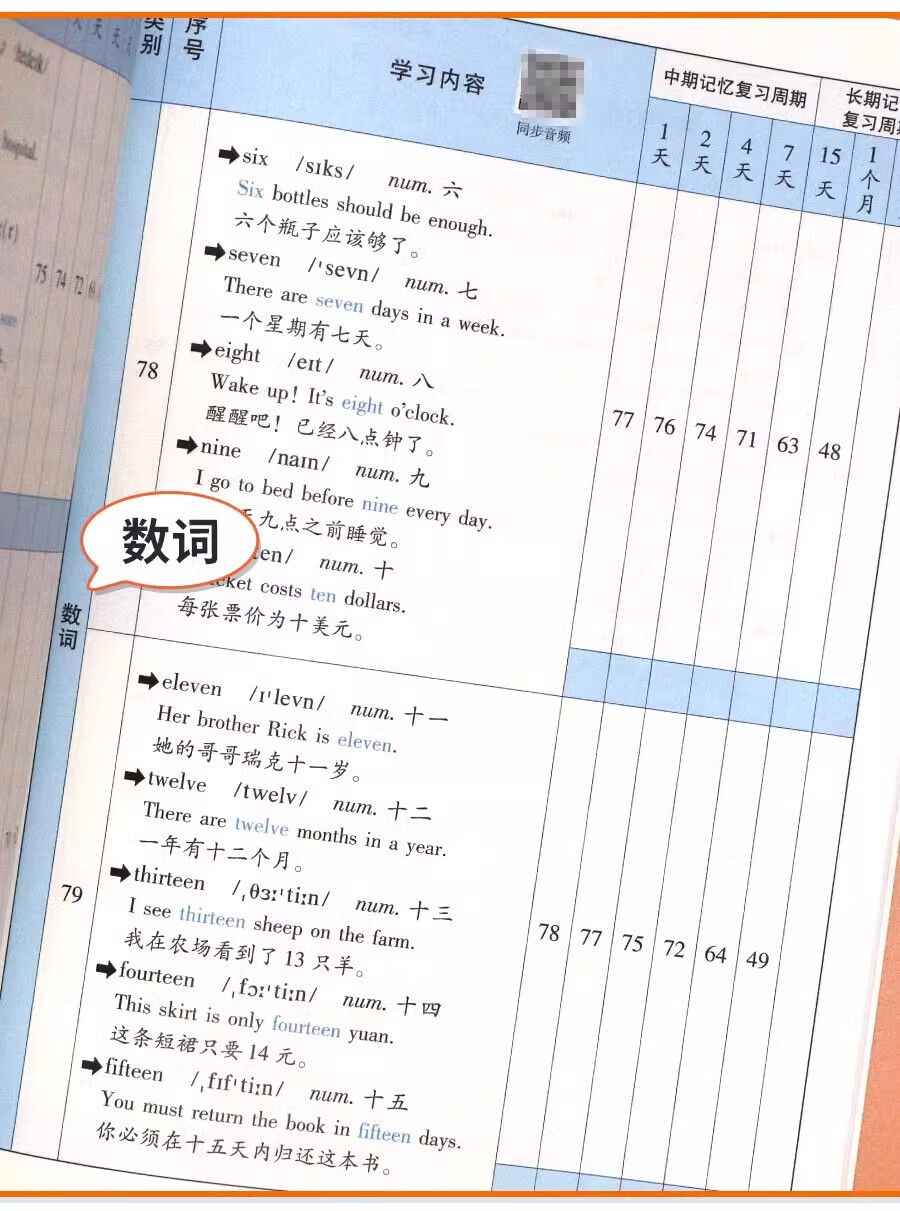 类别
序号
学习内容
同步音频
中期记忆复习周期
长期记
复习周
1天
2天
4天
7天
15天
1个月
数词
78
six /sɪks/ num. 六
Six bottles should be enough.
六个瓶子应该够了。
seven /ˈsevn/ num. 七
There are seven days in a week.
一个星期有七天。
eight /eɪt/ num. 八
Wake up! It's eight o'clock.
醒醒吧！已经八点钟了。
nine /naɪn/ num. 九
I go to bed before nine every day.
九点之前睡觉。
ten/ num. 十
costs ten dollars.
每张票价为十美元。
77 76 74 71 63 48
数词
79
eleven /ɪˈlevn/ num. 十一
Her brother Rick is eleven.
她的哥哥瑞克十一岁。
twelve /twelv/ num. 十二
There are twelve months in a year.
一年有十二个月。
thirteen /ˌθɜːˈtiːn/ num. 十三
I see thirteen sheep on the farm.
我在农场看到了 13 只羊。
fourteen /ˌfɔːˈtiːn/ num. 十四
This skirt is only fourteen yuan.
这条短裙只要 14 元。
fifteen /ˌfɪfˈtiːn/ num. 十五
You must return the book in fifteen days.
你必须在十五天内归还这本书。
78 77 75 72 64 49
hospital.
75 74 72